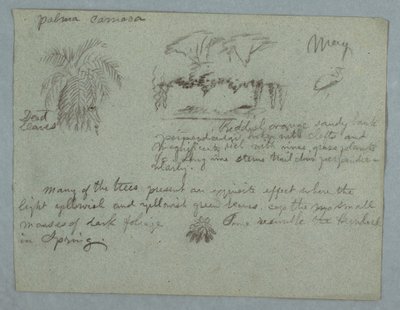 palma Camara
May
Dead
leaves
Reddish orange sandy bank
perpendicular with clefts and
with vines, grass plants
& long vine stems trail down perpendic-
ularly.
Many of the trees present an exquisite effect where the
light yellowish and yellowish green leaves small
masses of dark foliage. Some resemble the hemlock
in Spring.